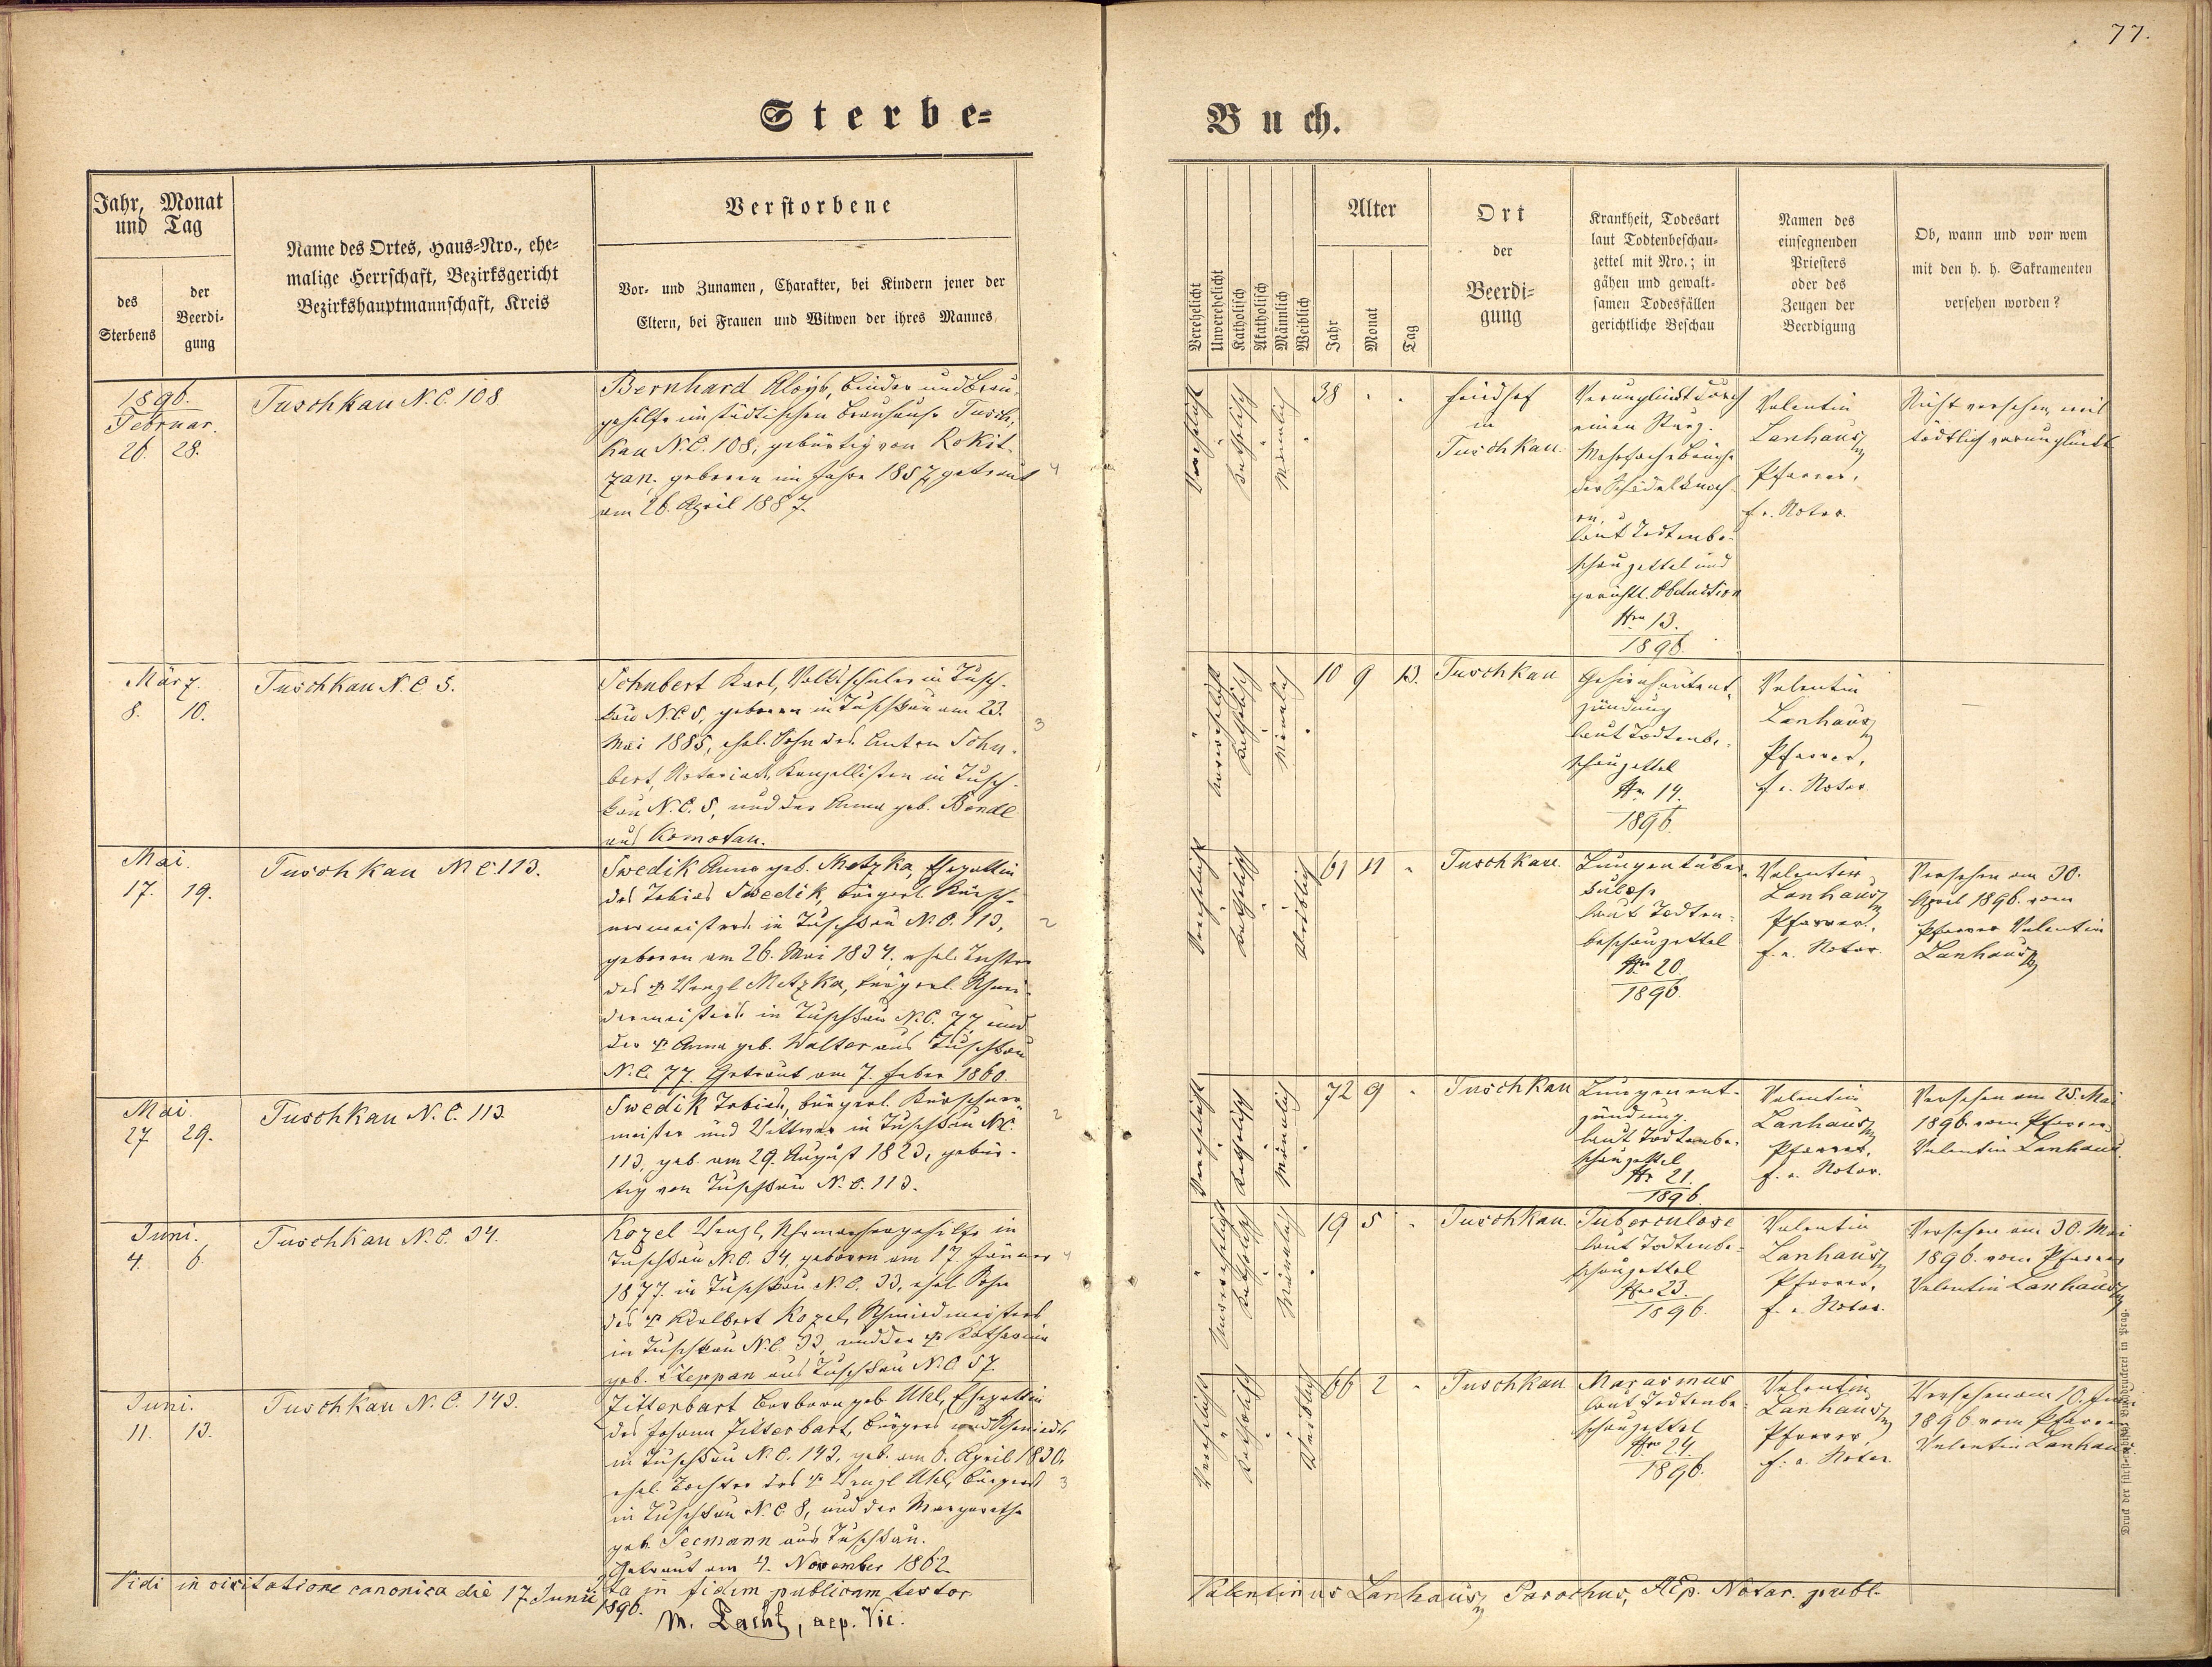 77.
Sterbe-
Buch.
Jahr, Monat
und Tag
des
Sterbens
der
Beerdi-
gung
Name des Ortes, Haus-Nro., ehe-
malige Herrschaft, Bezirksgericht
Bezirkshauptmannschaft, Kreis
Verstorbene
Vor- und Zunamen, Charakter, bei Kindern jener der
Eltern, bei Frauen und Witwen der ihres Mannes
Verehelicht
Unverehelicht
Katholisch
Akatholisch
Männlich
Weiblich
Alter
Jahr
Monat
Tag
Ort
der
Beerdi-
gung
Krankheit, Todesart
laut Todtenbeschau-
zettel mit Nro.; in
gähen und gewalt-
samen Todesfällen
gerichtliche Beschau
Namen des
einsegnenden
Priesters
oder des
Zeugen der
Beerdigung
Ob, wann und von wem
mit den h. h. Sakramenten
versehen worden?
1896.
Februar.
26. 28.
Tuschkau N.C. 108
Bernhard Aloys, Binder und Brau-
gehilfe im städtischen Brauhause Tusch-
kau N.C. 108, gebürtig von Rokit-
zan, geboren im Jahre 1857, getraut
am 26. April 1887.
4
Verehelicht
Katholisch
Männlich
38 . .
Friedhof
in
Tuschkau
Verunglückt durch
einen Sturz.
Mehrfache Brüche
der Schädelknoch-
en,
laut Todtenbe-
schauzettel und
gerichtl. Obduction
Nro 13.
1896.
Valentin
Lanhaus
Pfarrer,
f. e. Notar.
Nicht versehen, weil
tödtlich verunglückt
März.
8. 10.
Tuschkau N.C. 5.
Schubert Karl, Volksschüler in Tusch-
kau N.C. 5, geboren in Tuschkau am 23.
Mai 1885, ehel. Sohn des Anton Schu-
bert, Notariats Kanzellisten in Tusch-
kau N.C. 5, und der Anna geb. Bendl
aus Komotau.
3
Unverehelicht
Katholisch
Männlich
10 9 13.
Tuschkau
Gehirnhautent-
zündung
laut Todtenbe-
schauzettel
Nr. 14.
1896.
Valentin
Lanhaus
Pfarrer,
f. e. Notar
Mai.
17. 19.
Tuschkau N.C. 113.
Swedik Anna geb. Metzka, Ehegattin
des Tobias Swedik, bürgerl. Kürsch-
nermeisters in Tuschkau N.C. 113,
geboren am 26. Mai 1834. ehel. Tochter
des † Wenzl Metzka, bürgerl. Schnei-
dermeisters in Tuschkau N.C. 77 und
der † Anna geb. Walter aus Tuschkau
N.C. 77. Getraut am 7. Feber 1860.
2
Verehelicht
Katholisch
Weiblich
61 11 .
Tuschkau.
Lungentuber-
kulose
laut Todten-
beschauzettel
Nro 20.
1896.
Valentin
Lanhaus
Pfarrer,
f. e. Notar.
Versehen am 30.
April 1896. vom
Pfarrer Valentin
Lanhaus
Mai.
27. 29.
Tuschkau N.C. 113
Swedik Tobias, bürgerl. Kürschner-
meister und Wittwer in Tuschkau NC.
113, geb. am 29. August 1823, gebür-
tig von Tuschkau N.C. 113.
2
Verehelicht
Katholisch
Männlich
72 9 .
Tuschkau
Lungenent-
zündung
laut Todtenbe-
schauzettel
Nr 21.
1896
Valentin
Lanhaus
Pfarrer,
f. e. Notar.
Versehen am 25. Mai
1896. vom Pfarrer
Valentin Lanhaus.
Juni.
4. 6.
Tuschkau N.C. 34.
Kozel Wenzl, Uhrmachergehilfe in
Tuschkau N.C. 34, geboren am 17. Jänner
1877. in Tuschkau N.C. 33, ehel. Sohn
des † Adalbert Kozel, Schmiedmeisters
in Tuschkau N.C. 33, und der † Katharina
geb. Steppan aus Tuschkau N.C. 57.
4
Unverehelicht
Katholisch
Männlich
19 5 .
Tuschkau.
Tuberculose
laut Todtenbe-
schauzettel
Nro 23.
1896
Valentin
Lanhaus
Pfarrer,
f. e. Notar.
Versehen am 30. Mai
1896. vom Pfarrer
Valentin Lanhaus
Juni.
11. 13.
Tuschkau N.C. 143.
Zitterbart Barbara geb. Uhl, Ehegattin
des Johann Zitterbart, Bürgers und Schmieds
in Tuschkau N.C. 143, geb. am 6. April 1830.
ehel. Tochter des † Wenzl Uhl, Bürgers
in Tuschkau N.C. 8, und der Margaretha
geb. Seemann aus Tuschkau.
Getraut am 4. November 1862.
3
Verehelicht
Katholisch
Weiblich
66 2 .
Tuschkau
Marasmus
laut Todtenbe-
schauzettel
Nro 24.
1896.
Valentin
Lanhaus
Pfarrer,
f. e. Notar.
Versehen am 10. Juni
1896 vom Pfarrer
Valentin Lanhaus.
Vidi in visitatione canonica die 17. Junii
1896.
Ita in fidem publicam testor
Valentinus Lanhaus, Parochus, AEp. Notar. publ.
aep. Vic.